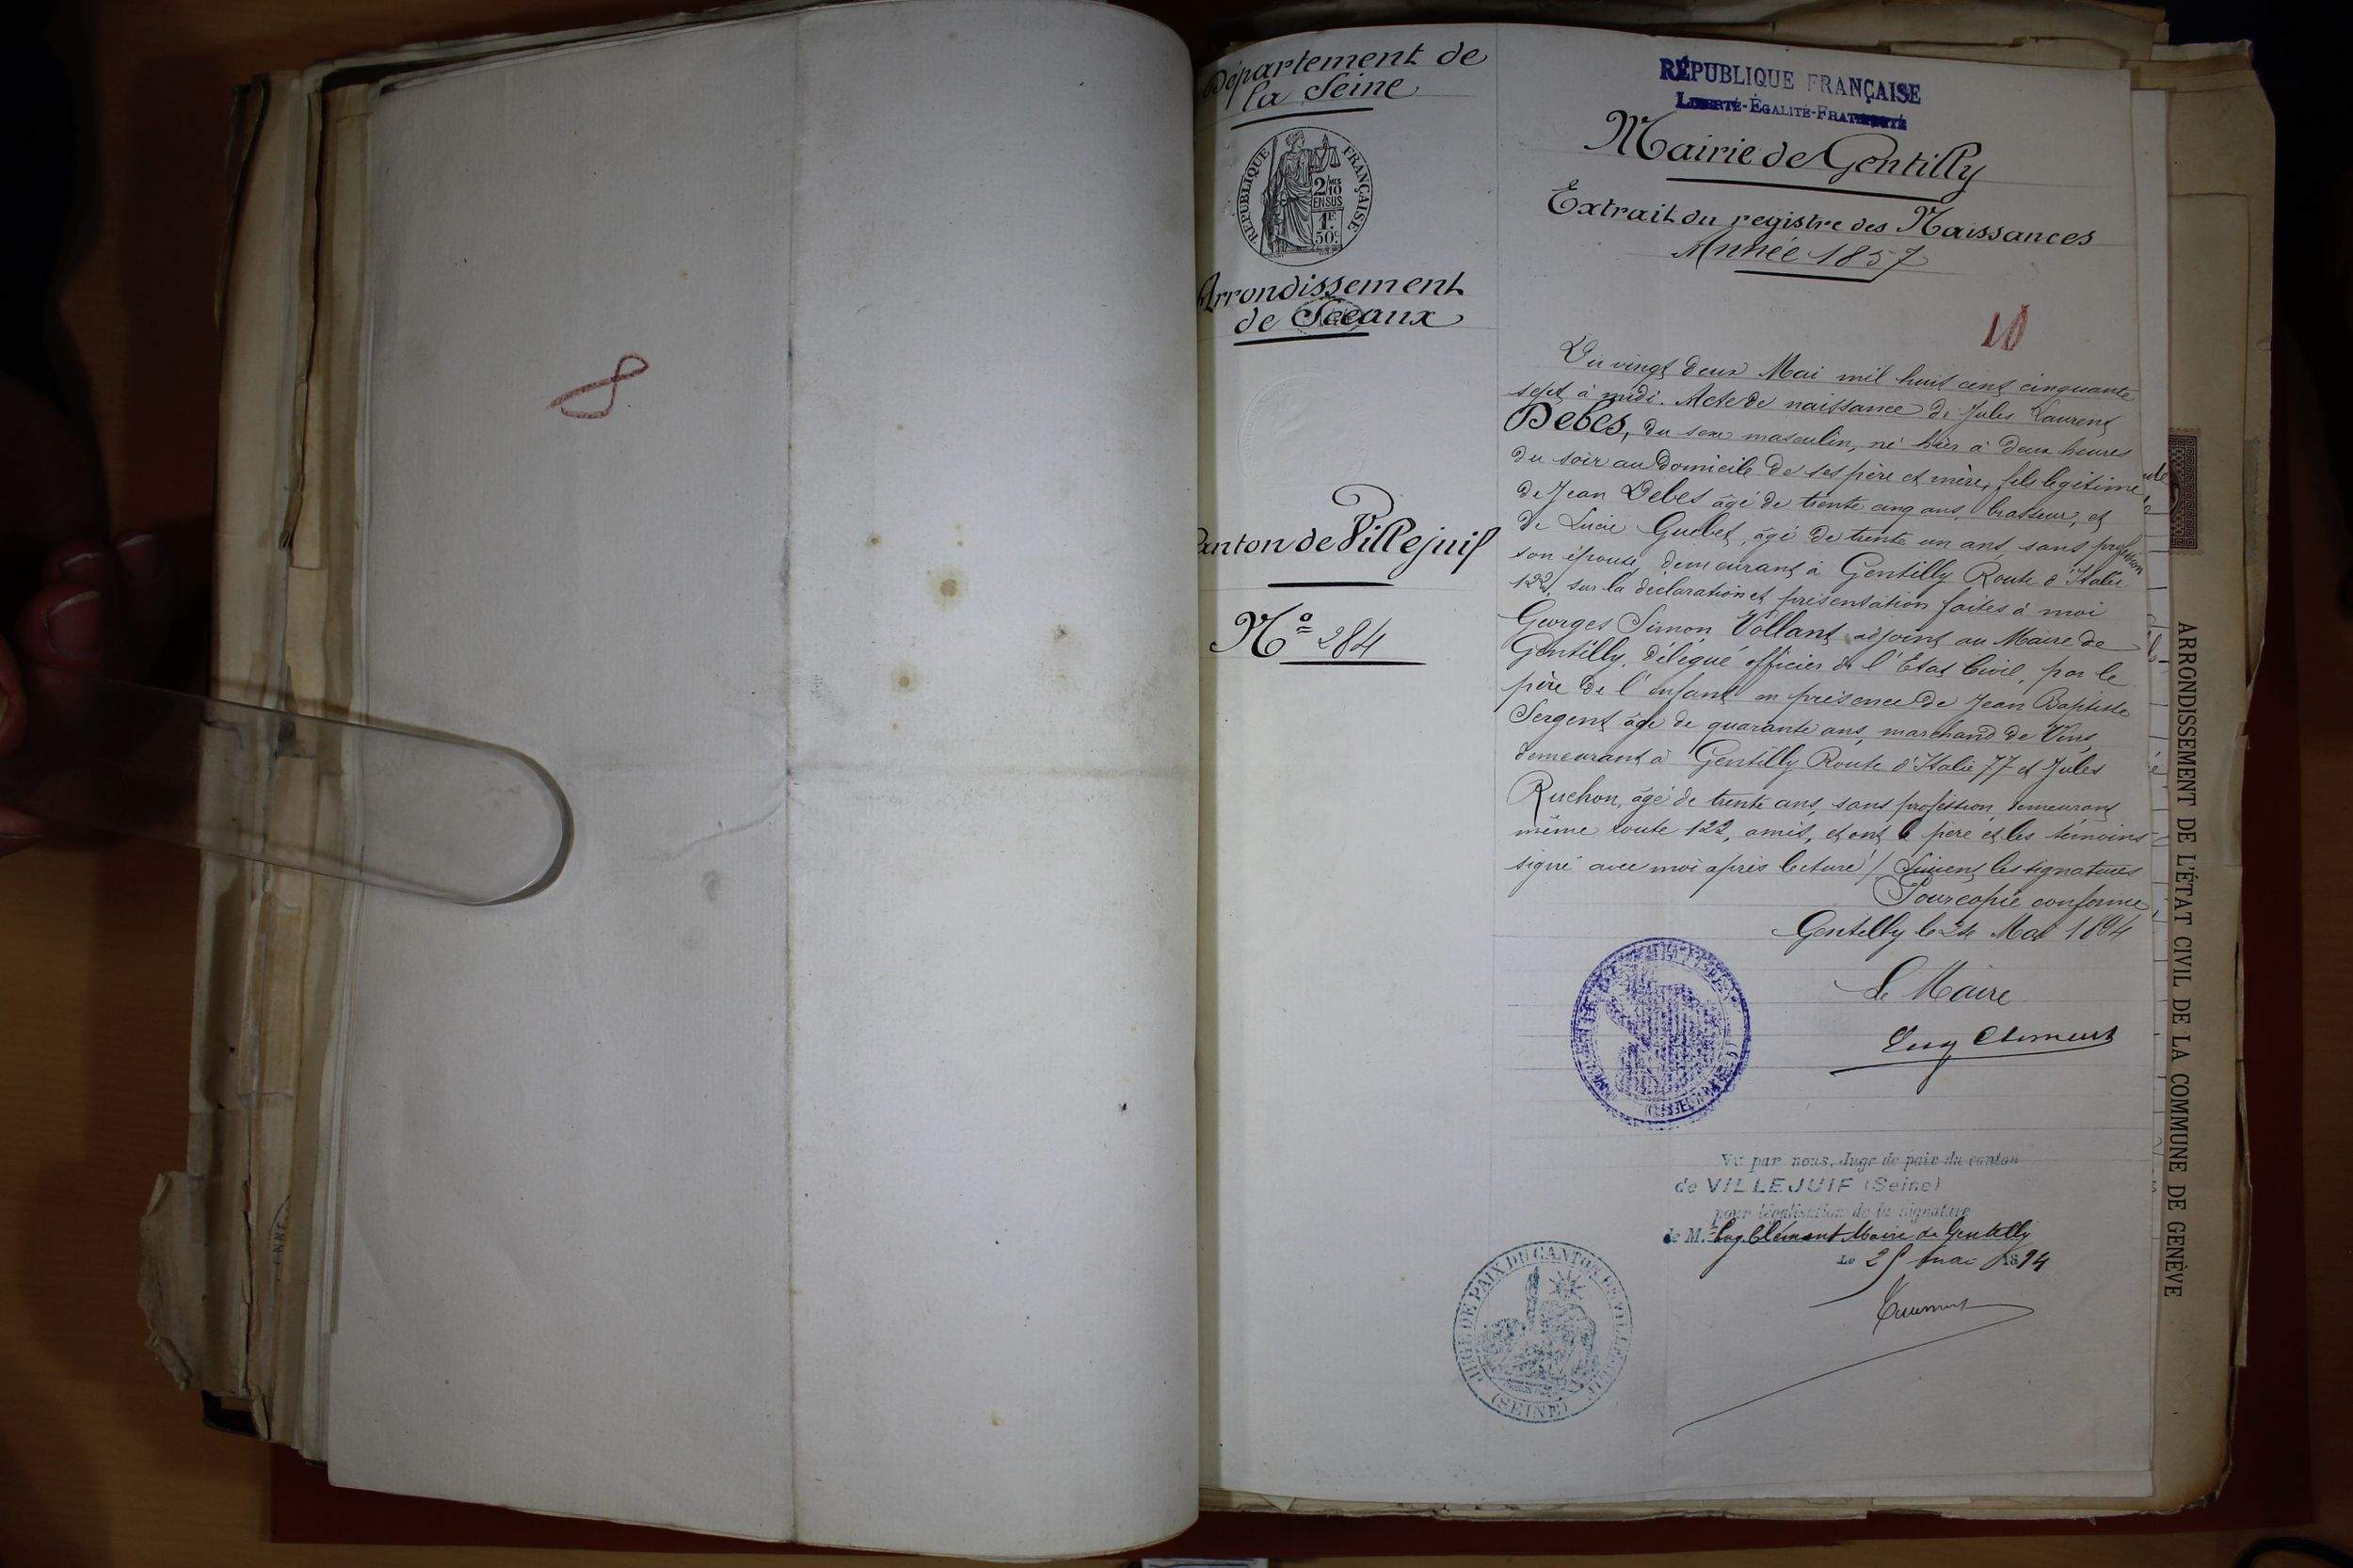 8
Département de
la Seine
RÉPUBLIQUE FRANÇAISE
2/10 MES
EN SUS
1F.
50c.
Arrondissement
de Sceaux
Canton de Villejuif
No 284
RÉPUBLIQUE FRANÇAISE
LIBERTÉ-ÉGALITÉ-FRATERNITÉ
Mairie de Gentilly
Extrait du registre des Naissances
Année 1857
10
Du vingt deux Mai mil huit cent cinquante
sept à midi. Acte de naissance de Jules Laurent
Debes, du sexe masculin, né hier à deux heures
du soir au domicile de ses père et mère, fils légitime
de Jean Debes âgé de trente cinq ans, brasseur, et
de Lucie Guebet, âgé de trente un ans, sans profession
son épouse, demeurant à Gentilly Route d'Italie
122, sur la déclaration et présentation faites à moi
Georges Simon Vollant adjoint au Maire de
Gentilly, délégué officier de l'Etat Civil, par le
père de l'enfant en présence de Jean Baptiste
Sergent âgé de quarante ans, marchand de Vins,
demeurant à Gentilly Route d'Italie 77 et Jules
Ruchon, âgé de trente ans, sans profession demeurant
même route 122, amis, et ont le père et les témoins
signé avec moi après lecture / Suivent les signatures
Pour copie conforme
Gentilly le 24 Mai 1894
Le Maire
Eug Clément
Vu par nous, Juge de paix du canton
de VILLEJUIF (Seine)
pour légalisation de la signature
de M. Eug. Clément Maire de Gentilly
Le 25 mai 1894
JUGE DE PAIX DU CANTON DE VILLEJUIF
(SEINE)
ARRONDISSEMENT DE L'ÉTAT CIVIL DE LA COMMUNE DE GENÈVE